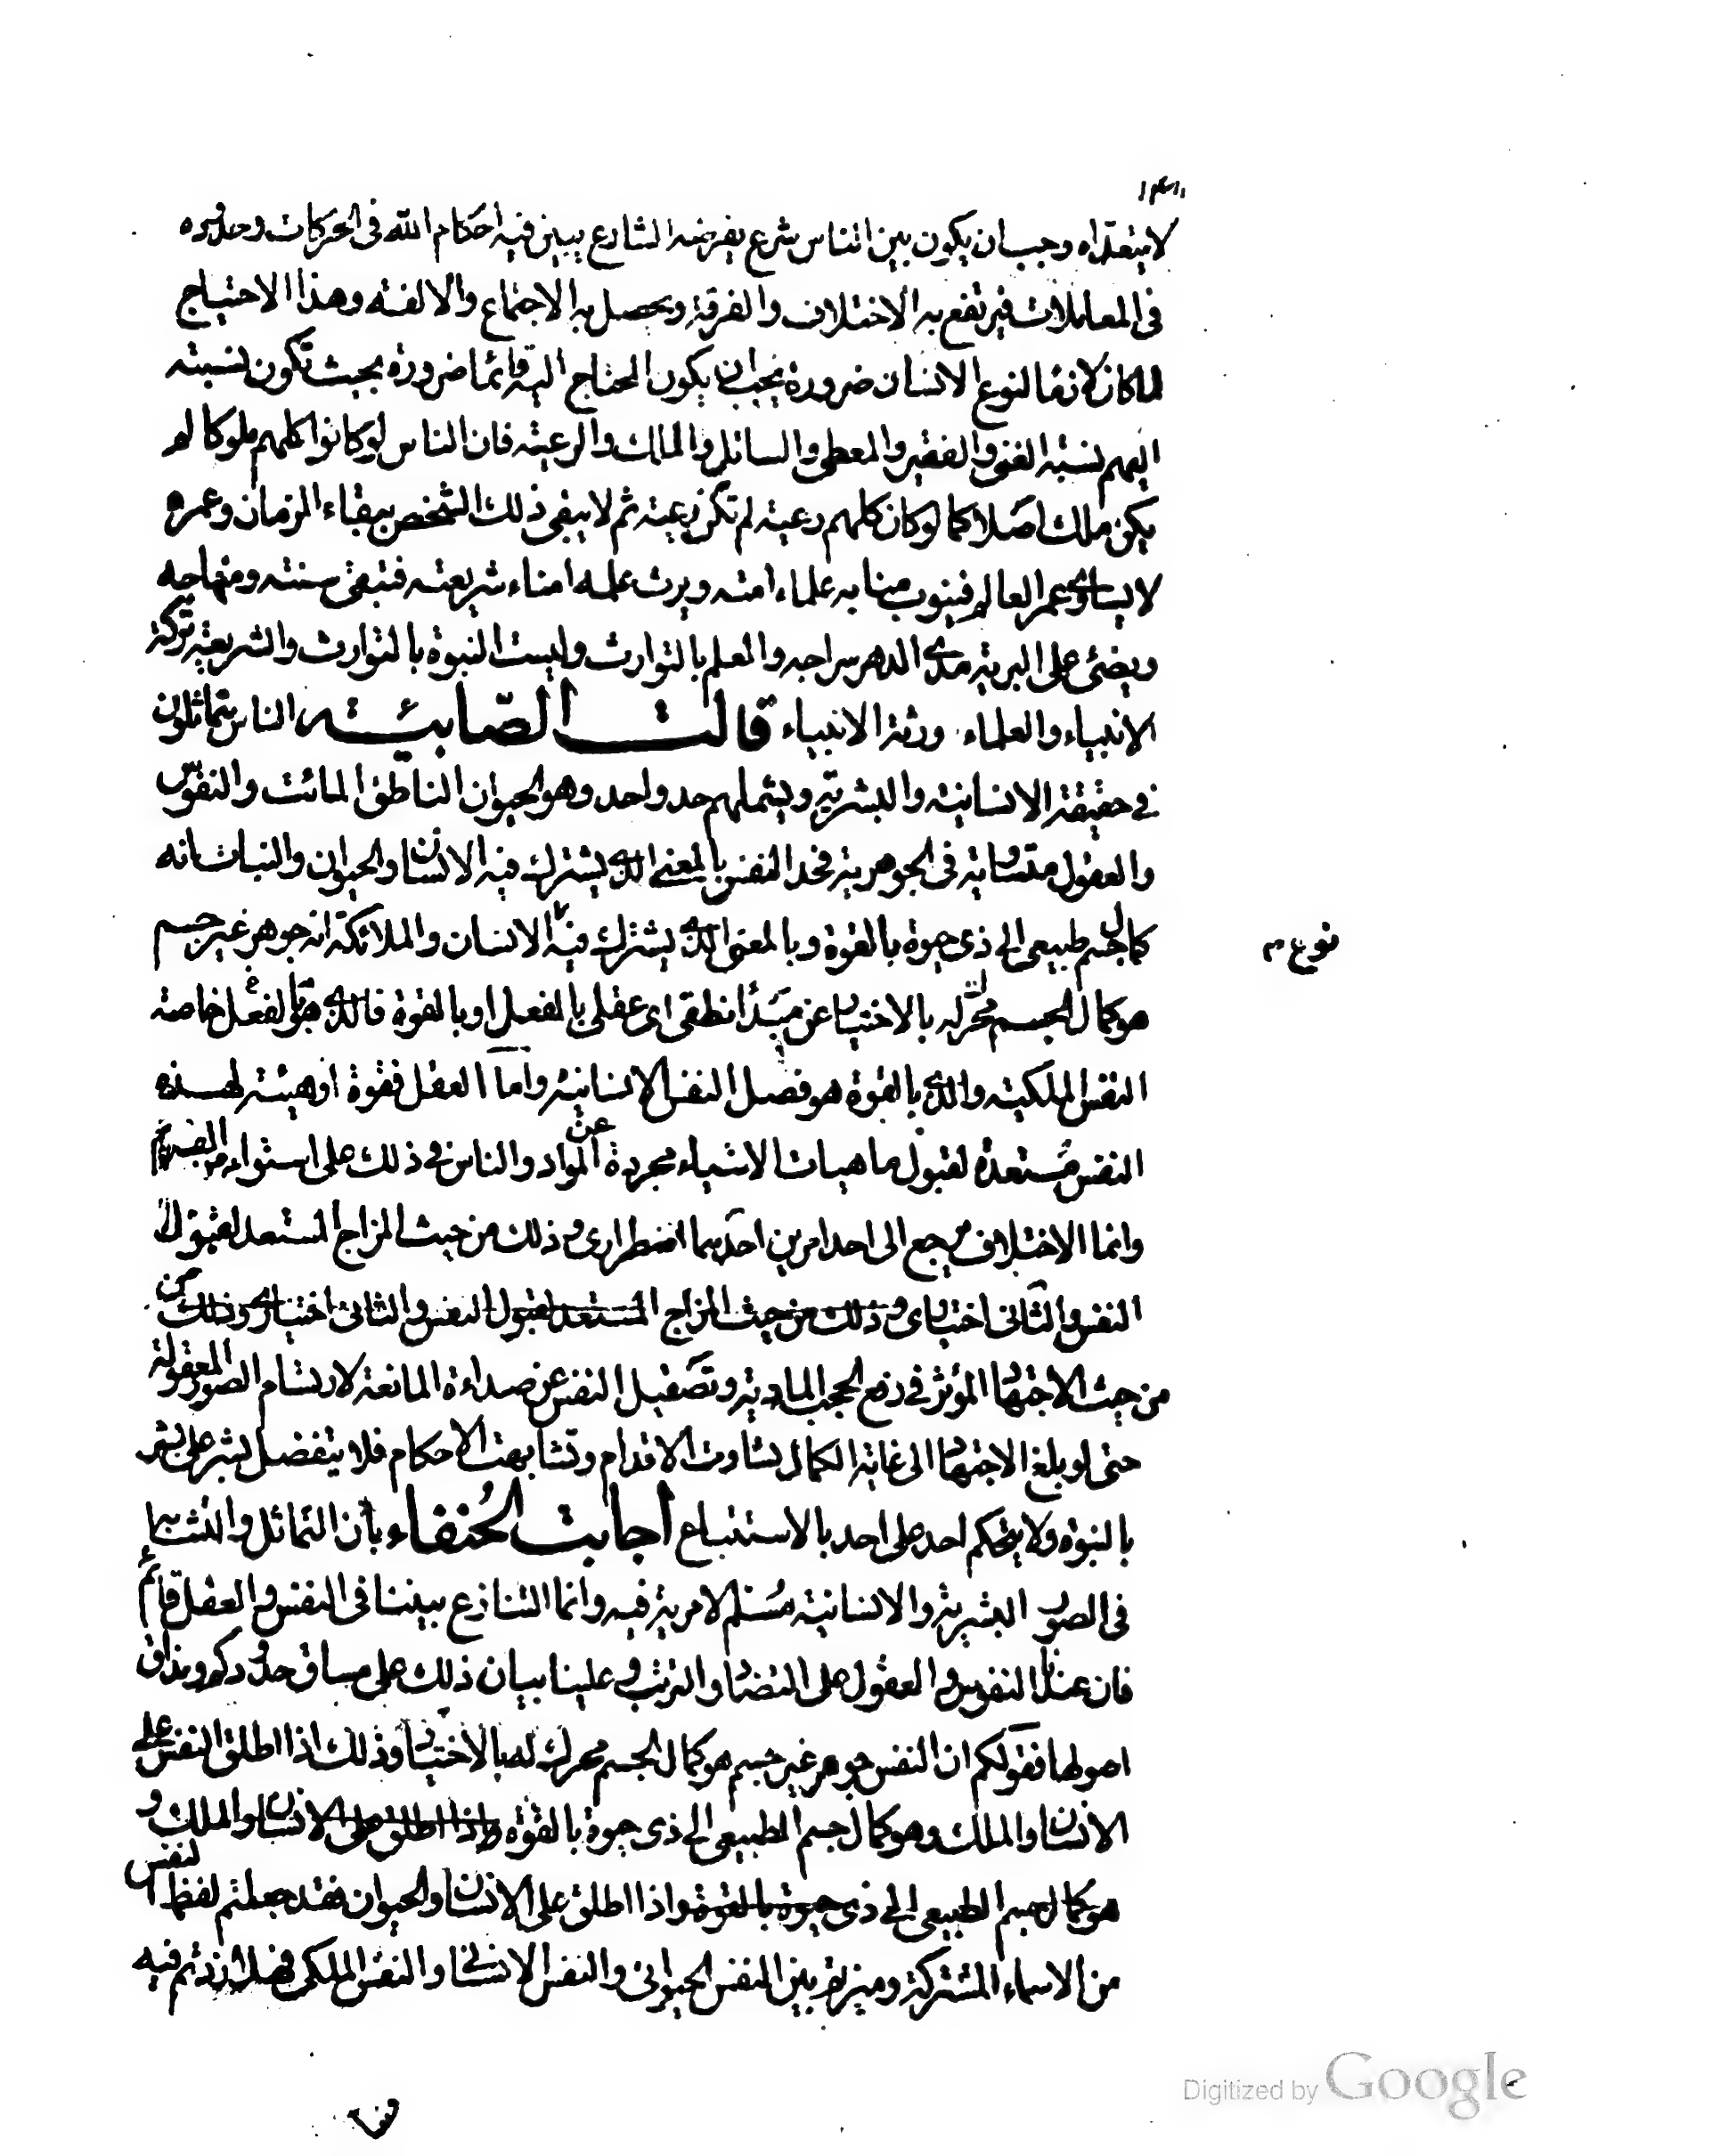 لا يتعداه وجب ان يكون بين الناس شرع يفرضه الشارع يبين فيه احكام الله فى الحركات وحدوده
فى المعاملات فيرتفع به الاختلاف والفرقة ويحصل به الاجتماع والالفة وهذا الاحتياج
لما كان لازما لنوع الانسان ضرورة يجب ان يكون المحتاج اليه قائما ضرورة بحيث تكون نسبته
اليهم نسبة الغنى والفقير والمعطى والسائل والمالك والرعية فان الناس لو كانوا كلهم ملوكا لم
يكن ملك اصلا كما لو كان كلهم رعية لم تكن رعية ثم لا يبقى ذلك الشخص ببقاء الزمان وعمره
لا يساوى عمر العالم فينوب منابه علماء امته ويرث علمه امناء شريعته فتبقى سنته ومنهاجه
ويضئ على البرية مدى الدهر سراجه والعلم بالتوارث وليست النبوة بالتوارث والشريعة تركة
الانبياء والعلماء ورثة الانبياء قالت الصّابئة الناس متماثلون
فى حقيقة الانسانية والبشرية ويشملهم حد واحد وهو الحيوان الناطق المائت والنفوس
والعقول متساوية فى الجوهرية فحد النفس بالمعنى الذى يشترك فيه الانسان والحيوان والنبات انه
كمال جسم طبيعى الى ذى حيوة بالقوة وبالمعنى الذى يشترك فيه الانسان والملائكة انه جوهر غير جسم
نوع م
هو كمال الجسم محرك له بالاختيار عن مبدأ نطقى اى عقلى بالفعل او بالقوة فالذى هو بالفعل خاصة
النفس الملكية والذى بالقوة هو فصل النفس الانسانية واما العقل فقوة او هيئة لهذه
النفس مستعدة لقبول ماهيات الاشياء مجردة عن المواد والناس فى ذلك على استواء من القدم
وانما الاختلاف يرجع الى احد امرين احدهما اضطرارى وذلك من حيث المزاج المستعد لقبول
النفس والثانى اختيارى وذلك من حيث المزاج المستعد لقبول النفس والثانى اختيارى وذلك من
من حيث الاجتهاد المؤثر فى رفع الحجب المادية وتصقيل النفس عن صداءة المانعة لارتسام الصور المعقولة
حتى لو بلغ الاجتهاد الى غاية الكمال تساوت الاقدام وتشابهت الاحكام فلا يتفضل بشر على بشر
بالنبوة ولا يتحكم احد على احد بالاستتباع أجابت الحُنفاء بأن التماثل والتشابه
فى الصور البشرية والانسانية مسلم لا مرية فيه وانما التنازع بيننا فى النفس والعقل قائم
فان عندنا النفوس والعقول على التضاد والترتب وعلينا بيان ذلك على مساق حدودكم ومذاق
اصولها فقولكم ان النفس جوهر غير جسم هو كمال الجسم محرك له بالاختيار وذلك اذا اطلق النفس على
الانسان والملك وهو كمال جسم الطبيعى الى ذى حيوة بالقوة واذا اطلق على الانسان والملك و
هو كمال جسم الطبيعى الى ذى حيوة بالقوة واذا اطلق على الانسان والحيوان فقد جعلتم لفظ النفس
من الاسماء المشتركة وميزتم بين النفس الحيوانى والنفس الانسانى والنفس الملكى فهلا زدتم فيه
Digitized by Google